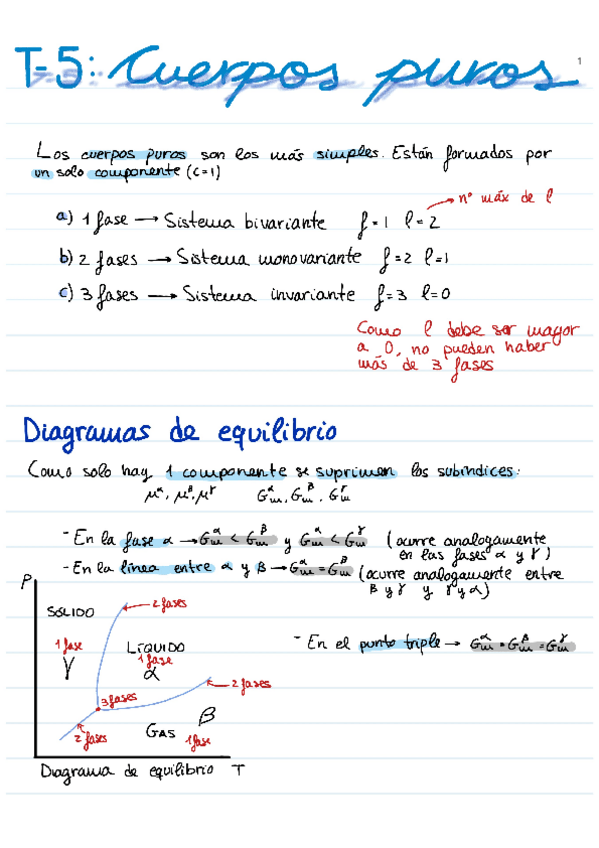 T-5: Cuerpos puros
1
Los cuerpos puros son los más simples. Están formados por
un solo componente (c=1)
nº máx de l
a) 1 fase → Sistema bivariante f=1 l=2
b) 2 fases → Sistema monovariante f=2 l=1
c) 3 fases → Sistema invariante f=3 l=0
Como l debe ser mayor
a 0, no pueden haber
más de 3 fases
Diagramas de equilibrio
Como solo hay 1 componente se suprimen los subíndices:
μ^α, μ^β, μ^γ G_m^α, G_m^β, G_m^γ
- En la fase α → G_m^α < G_m^β y G_m^α < G_m^γ (ocurre analogamente
en las fases α y γ)
- En la línea entre α y β → G_m^α = G_m^β (ocurre analogamente entre
β y γ y γ y α)
P
SÓLIDO
1 fase
γ
2 fases
LÍQUIDO
1 fase
α
2 fases
3 fases
2 fases
GAS
β
1 fase
Diagrama de equilibrio T
- En el punto triple → G_m^α = G_m^β = G_m^γ